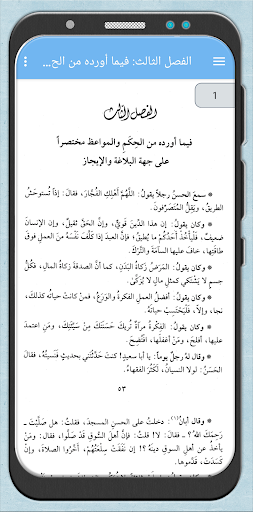 الفصل الثالث: فيما أورده من الح...
1
الفصل الثالث
فيما أورده من الحِكَم والمواعظ مختصراً
على جهة البلاغة والإيجاز
* سمع الحسنُ رجلاً يقولُ: اللَّهُمَّ أَهْلِكِ الفُجَّارَ، فقالَ: إذاً تَستوحشُ
الطريقُ، ويَقِلُّ المُتَصَرِّفونَ.
* وكان يقولُ: إن هذا الدِّينَ قَوِيٌّ، وإنَّ الحَقَّ ثقيلٌ، وإن الإنسانَ
ضعيفٌ، فَلْيَأْخُذْ أَحدُكُمْ ما يُطيقُ؛ فإنَّ العبدَ إذا كَلَّفَ نَفْسَهُ مِنَ العملِ فوقَ
طاقتِها، خافَ عليها السآمةَ والتَّرْكَ.
* وكان يقولُ: المَرَضُ زَكاةُ البَدَنِ، كما أنَّ الصدقةَ زكاةُ المالِ، فكُلُّ
جسمٍ لا يَشْتَكي كمثلِ مالٍ لا يُزَكَّى.
* وكان يقولُ: أفضلُ العملِ الفِكرةُ والوَرَعُ، فمنْ كانتْ حياتُه كذلكَ،
نجا، وإلَّا، فَلْيَحْتَسِبْ حياتَه.
* وكان يقولُ: الفِكرةُ مرآةٌ تُريكَ حَسَنَتَكَ مِنْ سَيِّئَتِكَ، ومَنِ اعتمدَ
عليها، أفلحَ، ومَنْ أغفلَها، افتُضِحَ.
* وقالَ لهُ رجلٌ يوماً: يا أبا سعيدٍ! كنتَ حَدَّثْتَني بحديثٍ فَنَسيتُهُ، فقالَ
الحَسَنُ: لولا النسيانُ، لَكَثُرَ الفقهاءُ.
٥٣
* وقال أبانُ(١): دخلتُ على الحسنِ المسجدَ، فقلتُ: هل صَلَّيْتَ ـ
رَحِمَكَ اللهُ؟ ـ قال: لا! قلتُ: فإنَّ أهلَ السُّوقِ قد صَلَّوا، فقالَ: مَنْ
يأخذُ عن أهلِ السوقِ دينَهُ؟ إنْ نَفَقَتْ سِلْعَتُهُمْ، أَخَّروا الصلاةَ، وإنْ
كَسَدَتْ، قَدَّموها.